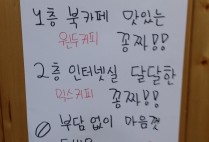 1층 북카페 맛있는
원두커피 꽁짜!!
2층 인터넷실 달달한
믹스커피 꽁짜!!
부담 없이 마음껏